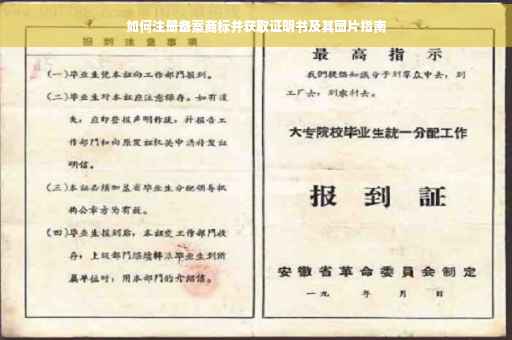 如何注册备案商标并获取证明书及其图片指南
报到注意事项
(一)毕业生凭本证向工作部门报到。
(二)毕业生对本证应注意保存。如有遗
失，应即登报声明作废，并报告工
作部门和向原发证机关申请补发证
明信。
(三)本证必须加盖省毕业生分配领导机
构公章方为有效。
(四)毕业生报到后，本证交工作部门收
存；上级部门
毕业生到所
属单位时，用本部门的介绍信。
最高指示
我们提倡知识分子到群众中去，到
工厂去，到农村去。
大专院校毕业生统一分配工作
报到证
安徽省革命委员会制定
一九 年 月 日